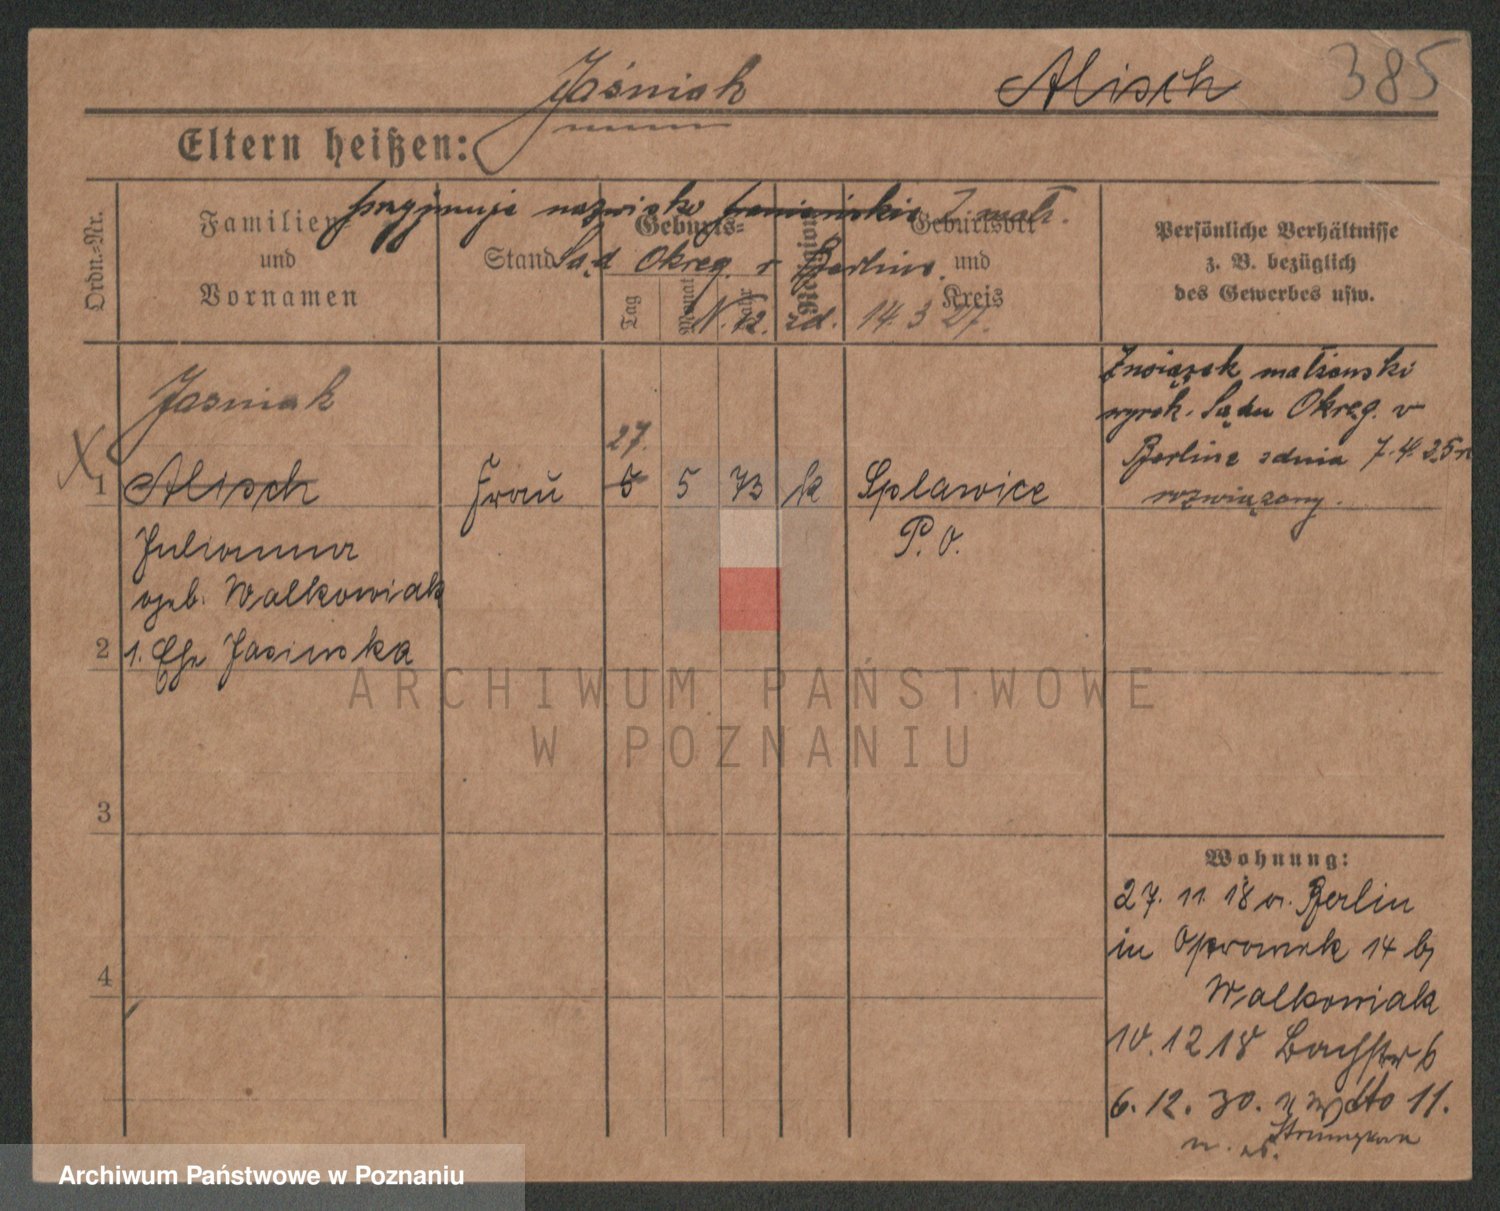 385
Jaśniak Alisch
Eltern heißen:
przyjmuje nazwisko panieńskie z małż.
Sąd Okręg. v Berlins.
N. 12. zd. 14. 3 27.
Ordn.-Nr.
Familien-
und
Vornamen
Stand
Geburts-
Tag
Monat
Jahr
Religion
Geburtsort
und
Kreis
Persönliche Verhältnisse
z. B. bezüglich
des Gewerbes usw.
Związek małżeński
wyrok. Sądu Okręg. v
Berline zdnia 7. 4. 25 r
rozwiązany.
Jasniak
27.
X
1 Alisch Frau 6 5 73 k Splawice
P. O.
Julianna
geb. Walkowiak
2 1. Ehe Jasinska
3
4
Wohnung:
27. 11. 18 v. Berlin
in 14 b/
Walkowiak
10. 12 18 6
6. 12. 30. dto 11.
ARCHIWUM PAŃSTWOWE
W POZNANIU
Archiwum Państwowe w Poznaniu